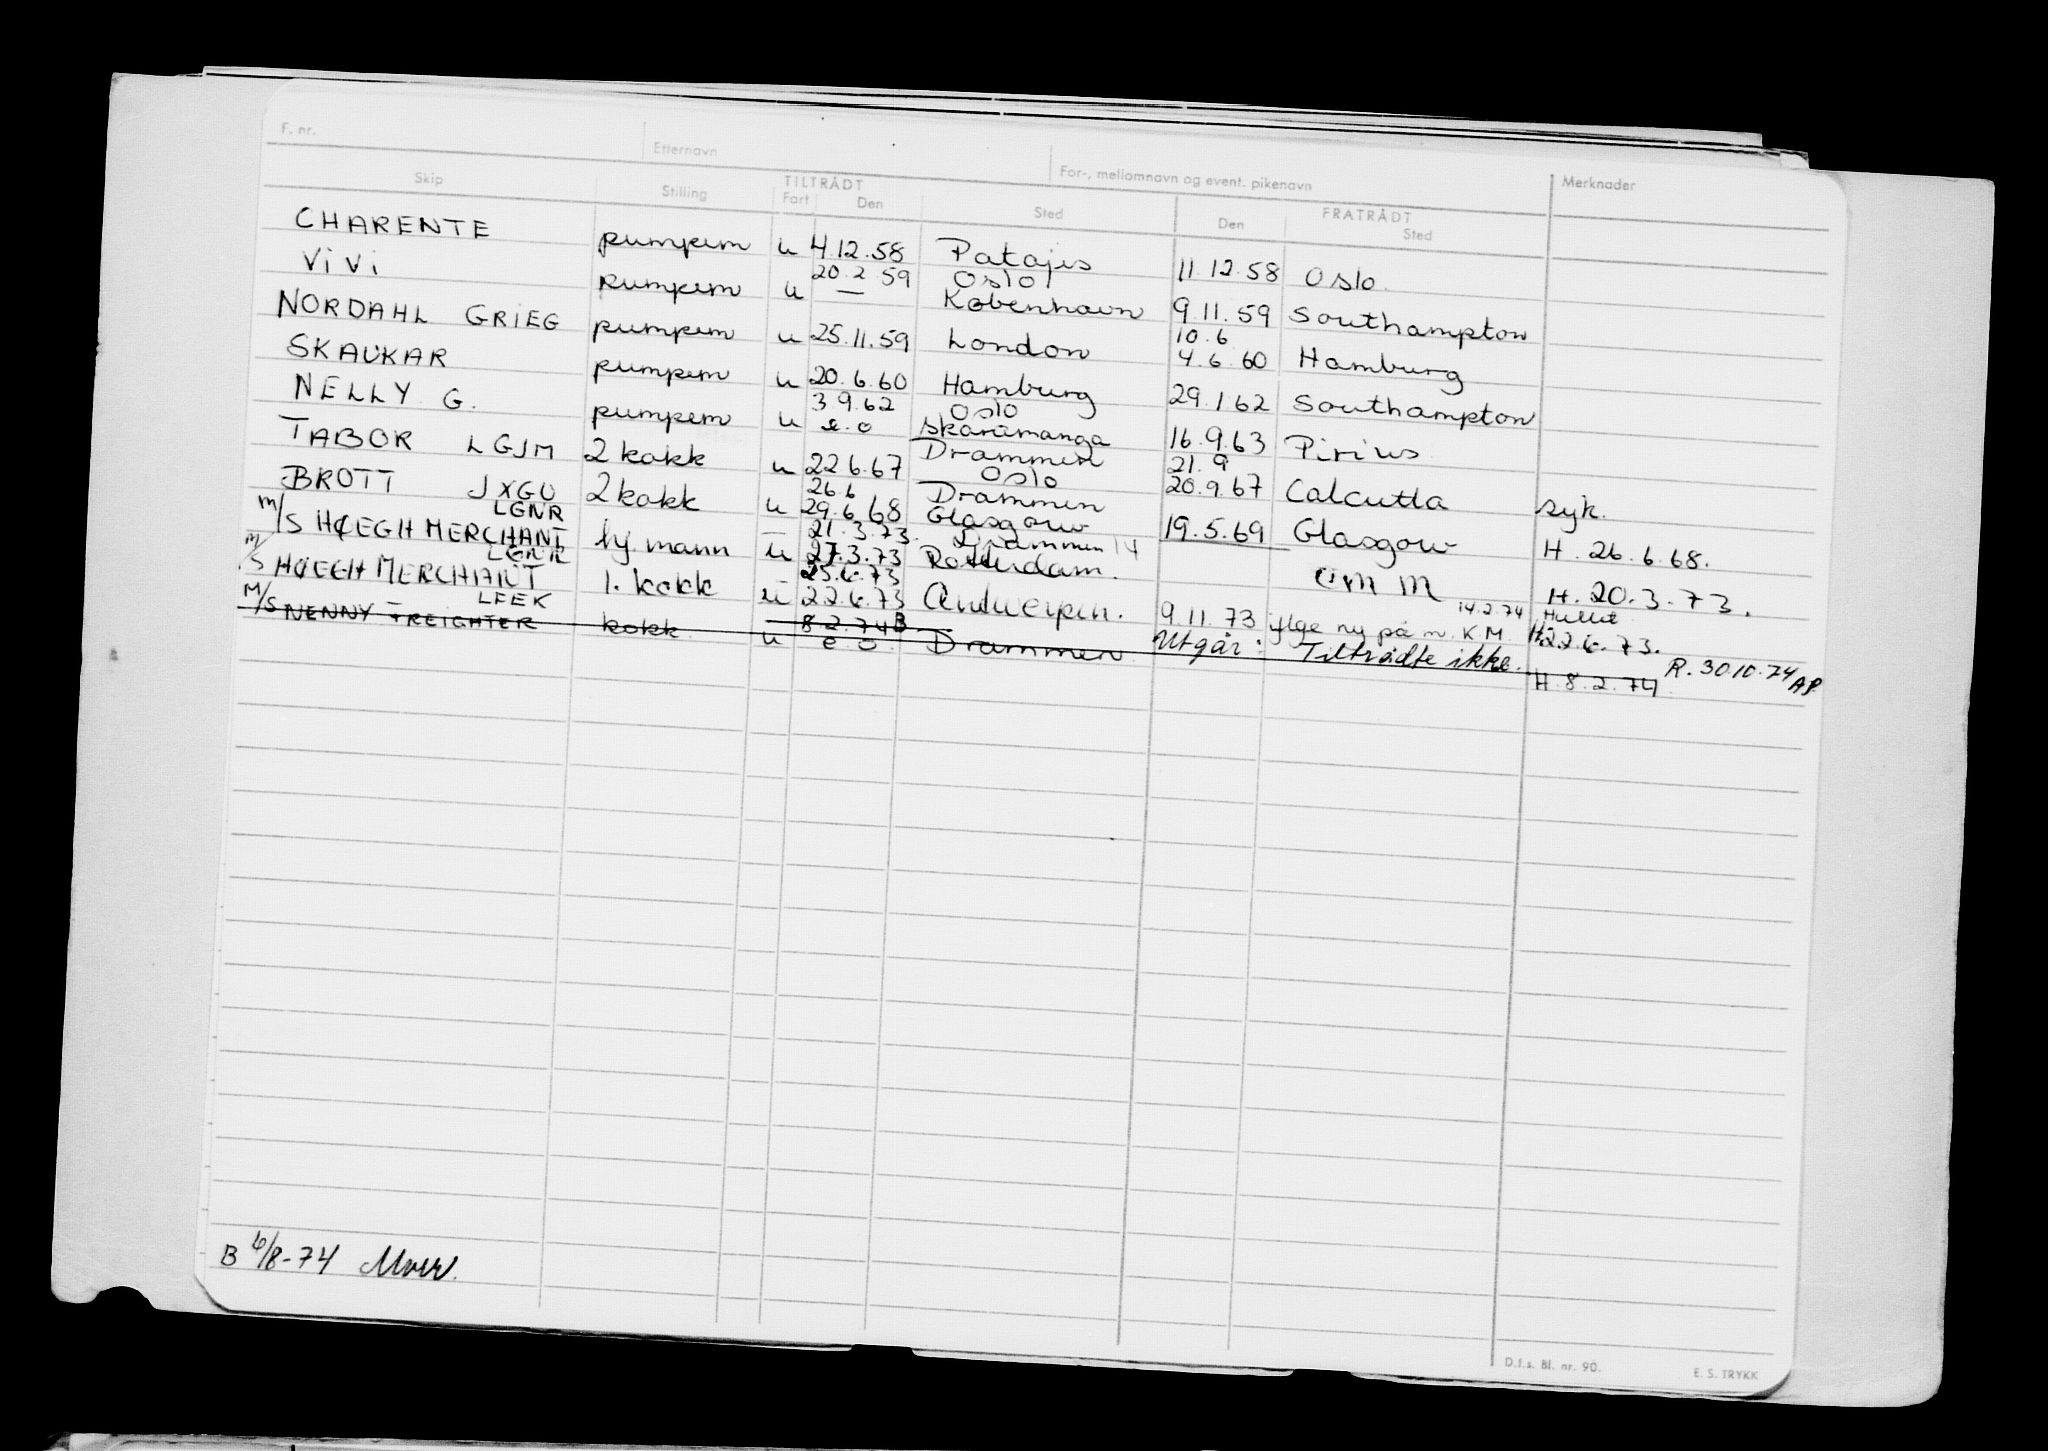 F. nr. Etternavn For-, mellomnavn og event. pikenavn Merknader
Skip Stilling TILTRÅDT Fart Den Sted FRATRÅDT Den Sted
CHARENTE pumpem u 4.12.58 Patajis 11.12.58 Oslo
ViVi pumpem u 20.2 59 — Oslo København 9.11.59 Southampton
NORDAHL GRIEG pumpem u 25.11.59 London 10.6 4.6.60 Hamburg
SKAUKAR pumpem u 20.6.60 Hamburg 29.1 62 Southampton
NELLY G. pumpem u 3 9.62 e.o Oslo skaramanga 16.9.63 Pirius
TABOR LGJM 2 kokk u 22 6.67 Drammen Oslo 21.9 20.9.67 Calcutta syk.
BROTT JXGU 2 kokk u 26.6 29.6.68 Drammen Glasgow 19.5.69 Glasgow H. 26.6.68.
m/S HØEGH MERCHANT LGNR hj. mann u 21.3.73. 27.3.73 Drammen 14 Rotterdam. mM H. 20.3.73.
m/S HØEGH MERCHANT LGNR 1. kokk u 25.6.73 22.6.73 Antwerpen. 9.11.73 iflge ny på m. K.M. 14.2.74 H22.6.73.
M/S NENNY FREIGHTER LFEK kokk. u 8.2.74 B e.o. Drammen Utgår: Tiltrådte ikke. H. 8.2.74 R. 30.10.74 AP.
B 6/8-74
D.f.s. Bl. nr. 90. E. S. TRYKK